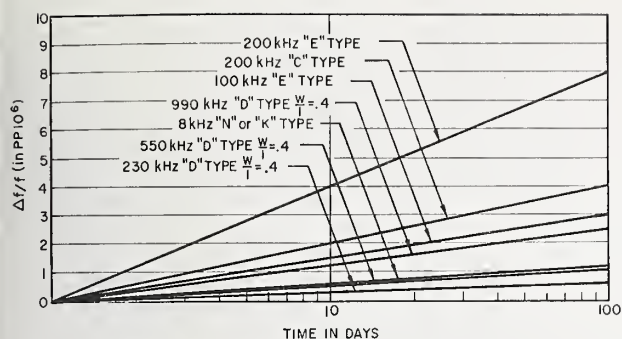 10
9
8
7
6
5
4
3
2
1
0
Δf/f (in PP10⁶)
200 kHz "E" TYPE
200 kHz "C" TYPE
100 kHz "E" TYPE
990 kHz "D" TYPE W/l = .4
8 kHz "N" or "K" TYPE
550 kHz "D" TYPE W/l = .4
230 kHz "D" TYPE W/l = .4
10
100
TIME IN DAYS